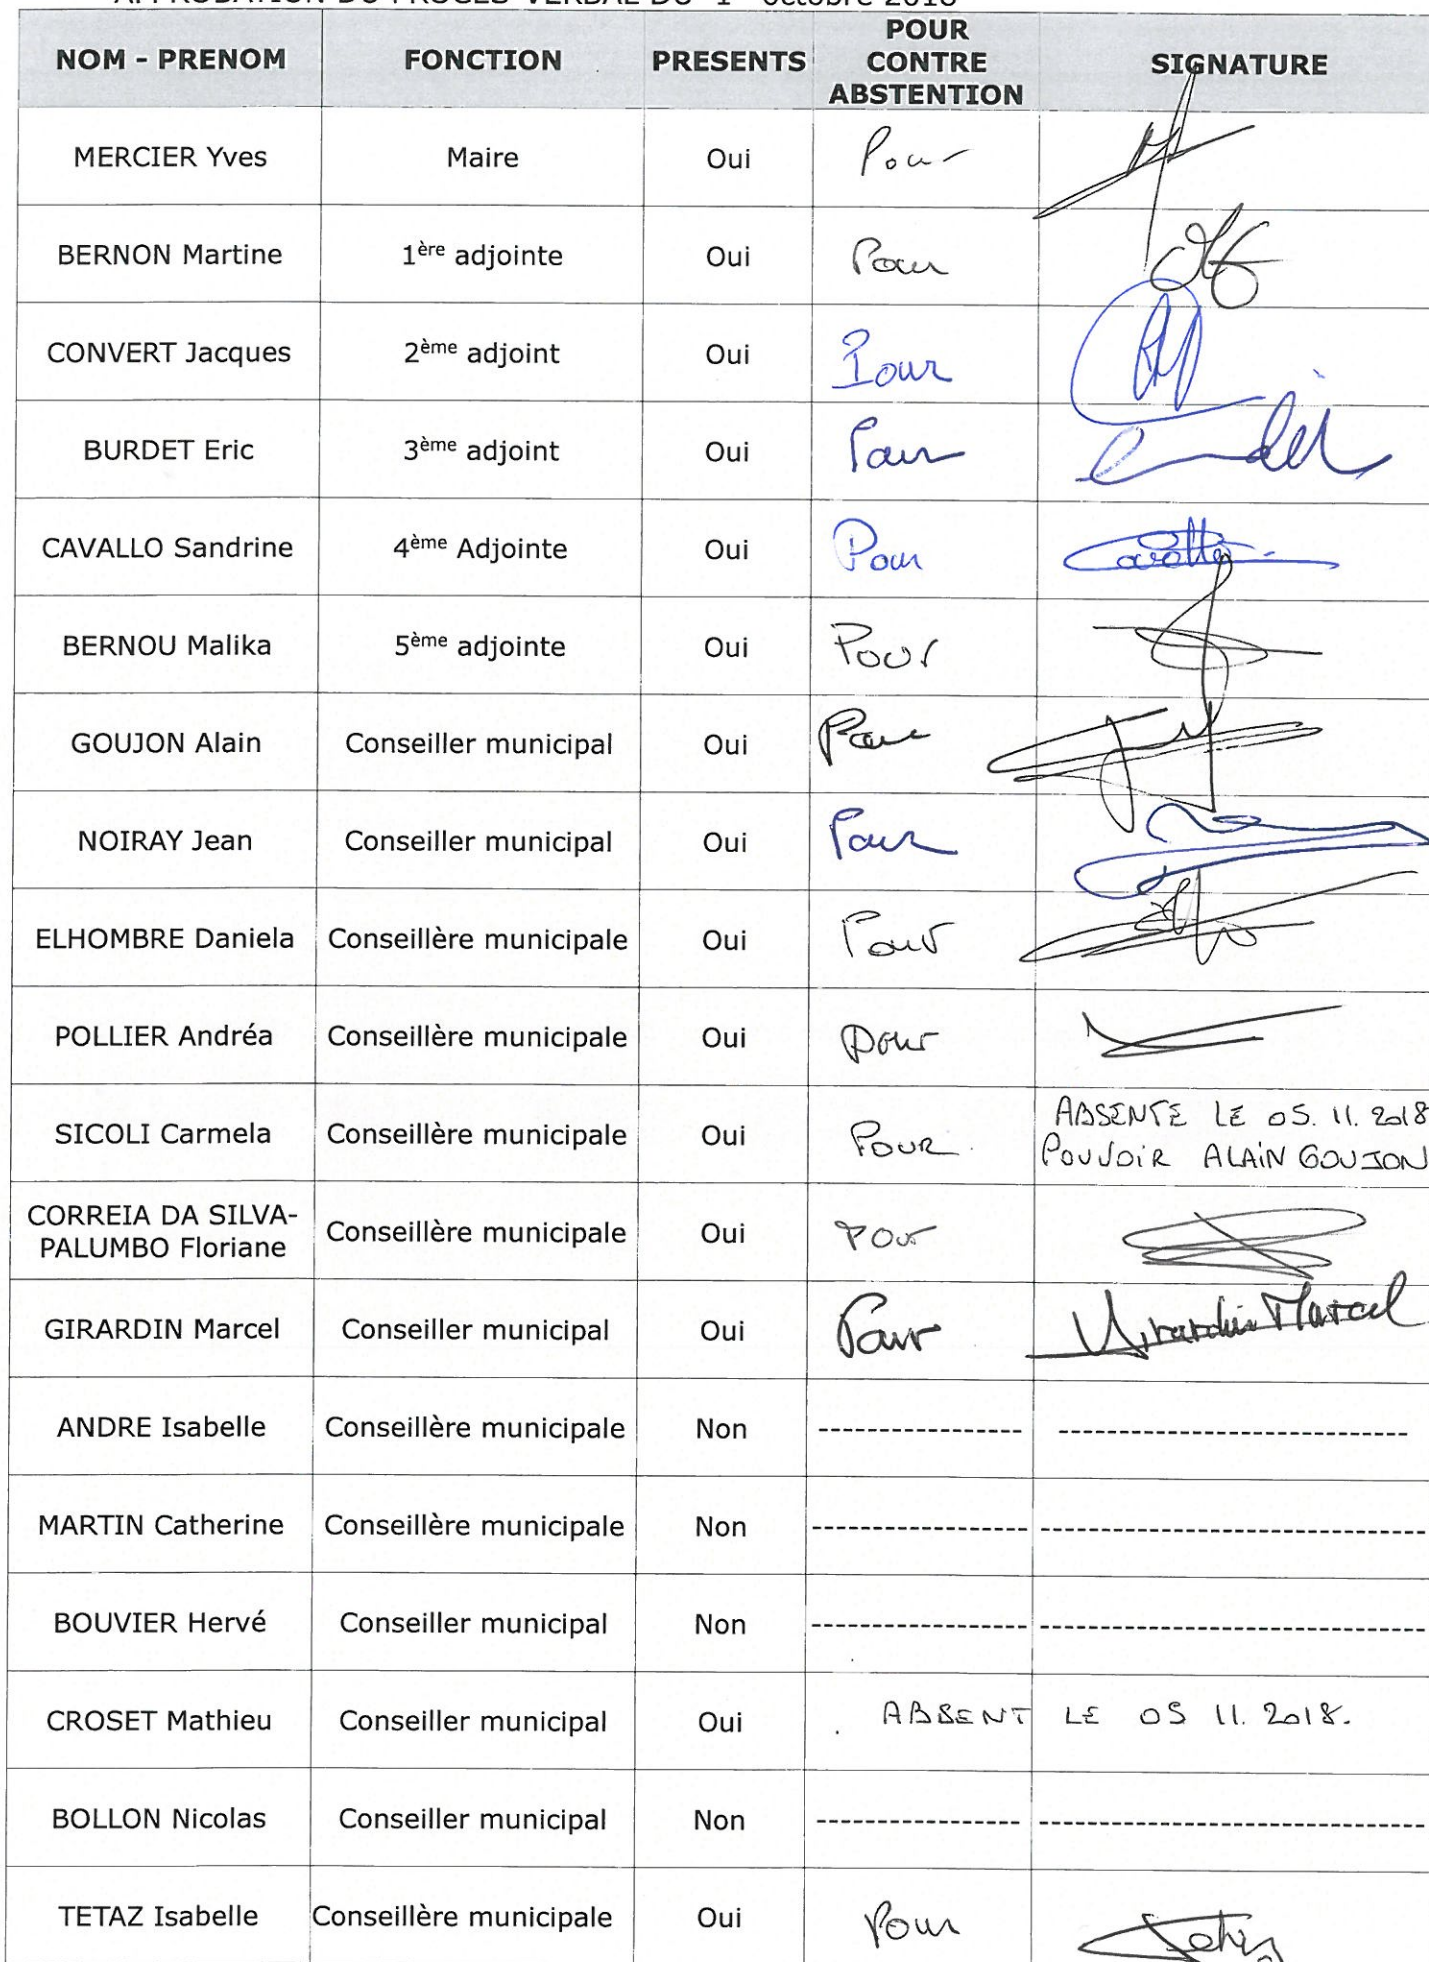 APPROBATION DU PROCES-VERBAL DU 1er octobre 2018
NOM - PRENOM FONCTION PRESENTS POUR CONTRE ABSTENTION SIGNATURE
MERCIER Yves Maire Oui Pour
BERNON Martine 1ère adjointe Oui Pour
CONVERT Jacques 2ème adjoint Oui Pour
BURDET Eric 3ème adjoint Oui Pour
CAVALLO Sandrine 4ème Adjointe Oui Pour
BERNOU Malika 5ème adjointe Oui Pour
GOUJON Alain Conseiller municipal Oui Pour
NOIRAY Jean Conseiller municipal Oui Pour
ELHOMBRE Daniela Conseillère municipale Oui Pour
POLLIER Andréa Conseillère municipale Oui Pour
SICOLI Carmela Conseillère municipale Oui POUR. ABSENTE LE 05. 11. 2018
POUVOIR ALAIN GOUJON
CORREIA DA SILVA-
PALUMBO Floriane Conseillère municipale Oui Pour
GIRARDIN Marcel Conseiller municipal Oui Pour Girardin Marcel
ANDRE Isabelle Conseillère municipale Non
MARTIN Catherine Conseillère municipale Non
BOUVIER Hervé Conseiller municipal Non
CROSET Mathieu Conseiller municipal Oui ABSENT LE 05 11. 2018.
BOLLON Nicolas Conseiller municipal Non
TETAZ Isabelle Conseillère municipale Oui Pour